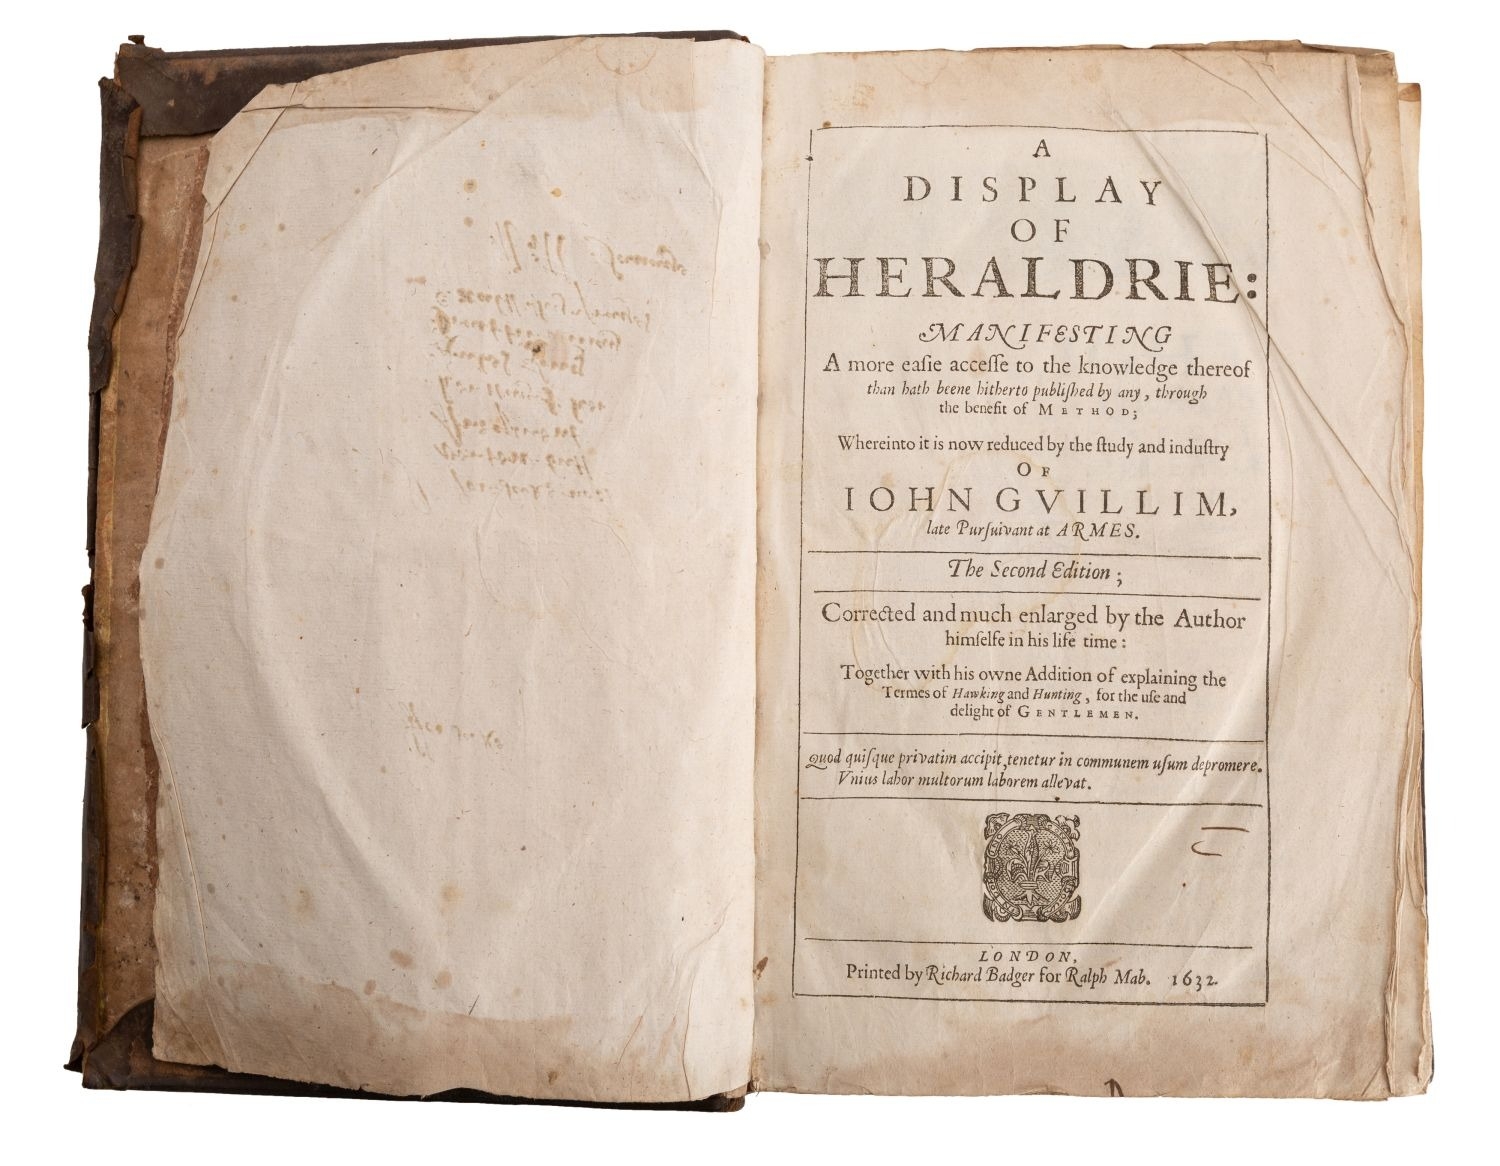 A
DISPLAY
OF
HERALDRIE:
MANIFESTING
A more eaſie acceſſe to the knowledge thereof
than hath beene hitherto publiſhed by any, through
the benefit of METHOD;
Whereinto it is now reduced by the ſtudy and induſtry
OF
IOHN GVILLIM,
late Purſuivant at ARMES.
The Second Edition;
Corrected and much enlarged by the Author
himſelfe in his life time:
Together with his owne Addition of explaining the
Termes of Hawking and Hunting, for the uſe and
delight of GENTLEMEN.
Quod quiſque privatim accipit, tenetur in communem uſum depromere.
Vnius labor multorum laborem allevat.
LONDON,
Printed by Richard Badger for Ralph Mab. 1632.